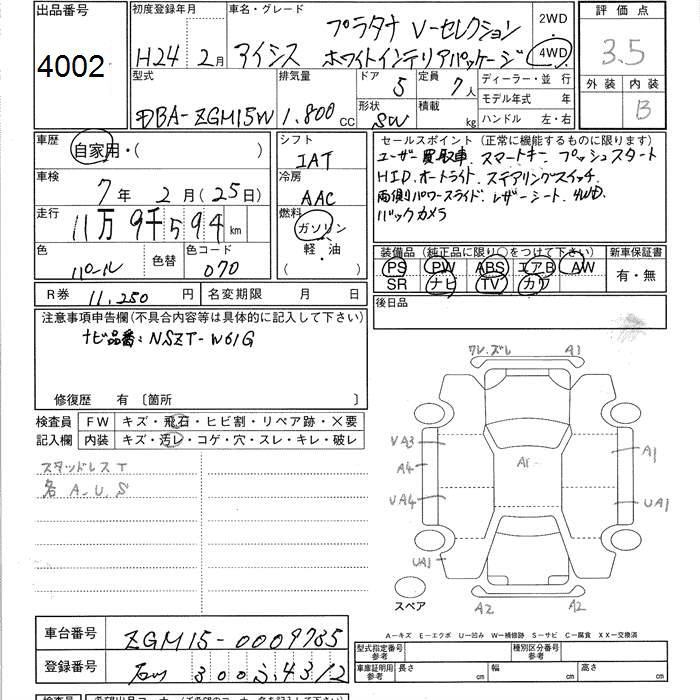 出品番号
4002
初度登録年月
H24 2月
車名・グレード
アイシス プラタナ V-セレクション
ホワイトインテリアパッケージ
2WD
4WD
評価点
3.5
外装 内装
B
型式
DBA-ZGM15W
排気量
1,800 CC
ドア
5
形状
SW
定員
7人
積載
kg
ディーラー・並行
モデル年式 年
ハンドル 左・右
車歴
自家用・( )
車検
7年 2月(25日)
走行
11万9千594km
色
パール
色替
色コード
070
シフト
IAT
冷房
AAC
燃料
ガソリン
軽・油
( )
セールスポイント(正常に機能するものに限ります)
ユーザー買取車. スマートキー. プッシュスタート
HID. オートライト. ステアリングスイッチ.
両側パワースライド. レザーシート. 4WD.
バックカメラ
装備品(純正品に限り○をつけて下さい)
PS PW ABS エアB AW
SR ナビ TV カワ
新車保証書
有・無
後日品
R券 11,250円
名変期限 月 日
注意事項申告欄(不具合内容等は具体的に記入して下さい)
ナビ品番:NSZT-W61G
修復歴 有 〔箇所 〕
検査員
記入欄
FW キズ・飛石・ヒビ割・リペア跡・×要
内装 キズ・汚レ・コゲ・穴・スレ・キレ・破レ
スタッドレスT
各A.U.S
ワレ.ズレ
A1
VA3
A4
VA4
UA1
A1
UA1
A2
A2
スペア
車台番号 ZGM15-0009785
登録番号
300
4312
A-キズ E-エクボ U-凹み W-補修跡 S-サビ C-腐食 XX-交換済
型式指定番号
参考
種別区分番号
参考
車庫証明用
参考
長さ cm
幅 cm
高さ cm